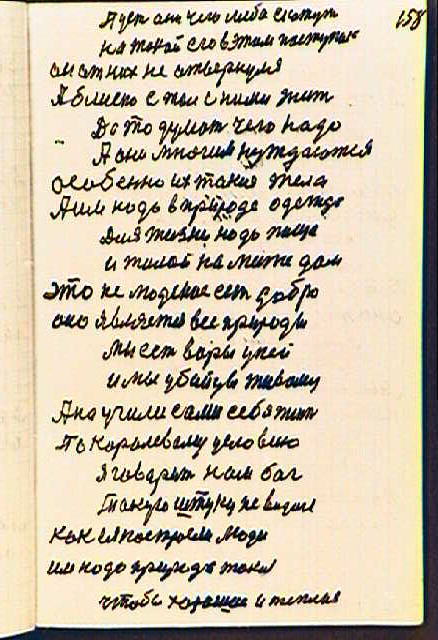 158
А усп они чего либо скажут
на такой его в этом поступок
он от них не отвернулся
Я близко стал с ними жит
Да то думат чего надо
А они многим нуждаются
особенно их такие тела
А им надо в природе одежде
Для жизни надо пища
и жилой на месте дом
это не людское ест добро
оно является все природы
мы ест воры у ней
и мы убийцы живому
Ана учили сами себя жит
По королевому условию
Я говарят нам бог
Такую штуку не видали
как построили люди
им надо природе
чтобы хорошие и теплыя